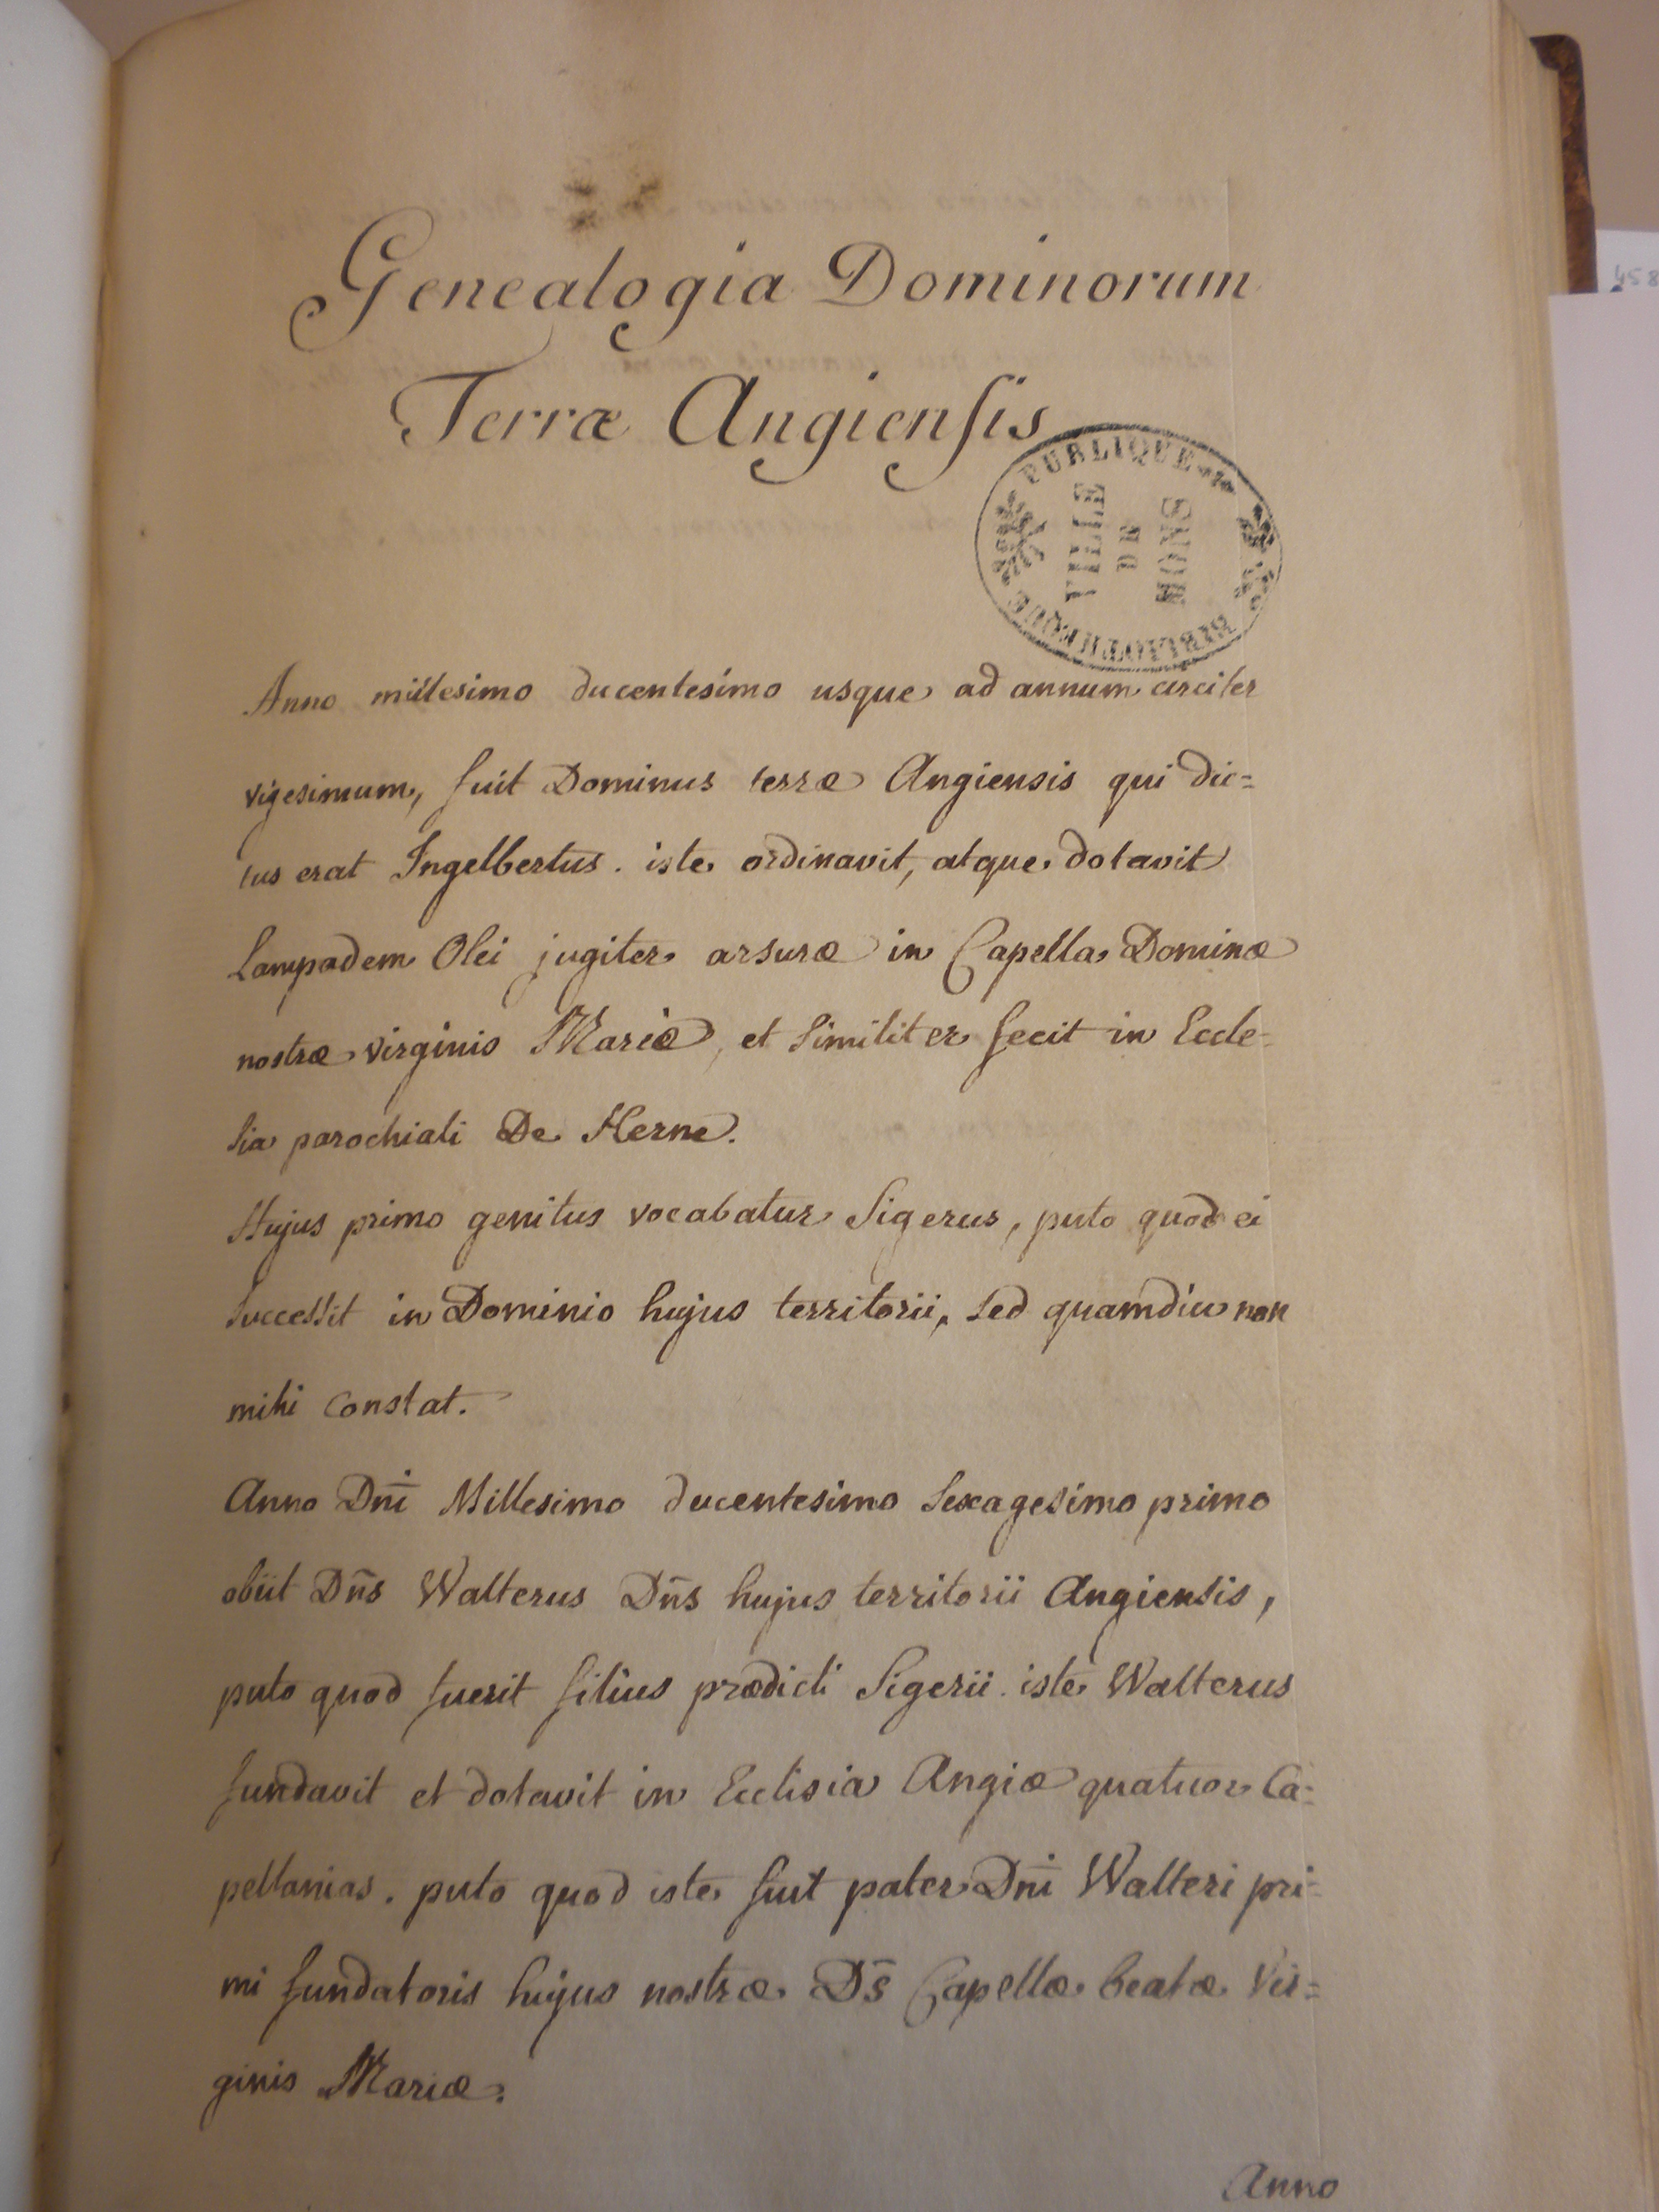 Genealogia Dominorum
Terræ Angiensis
PUBLIQUE
VILLE
DE
MONS
BIBLIOTHEQUE
Anno millesimo ducentesimo usque ad annum circiter
vigesimum, fuit Dominus terræ Angiensis qui dic=
tus erat Ingelbertus. iste ordinavit, atque dotavit
Lampadem Olei jugiter arsuræ in Capella Dominæ
nostræ virginis Mariæ, et similiter fecit in Eccle-
sia parochiali De Herne.
Hujus primo genitus vocabatur Sigerus, puto quod ei
successit in Dominio hujus territorii, sed quamdiu non
mihi constat.
Anno Dni̅ Millesimo ducentesimo sexagesimo primo
obiit Dn̅s Walterus Dn̅s hujus territorii Angiensis,
puto quod fuerit filius prædicti Sigerii. iste Walterus
fundavit et dotavit in Ecclisia Angiæ quatuor Ca=
pellanias. puto quod iste fuit pater Dni̅ Walteri pri=
mi fundatoris hujus nostræ D̅s Capellæ beatæ Vir=
ginis Mariæ.
Anno
458